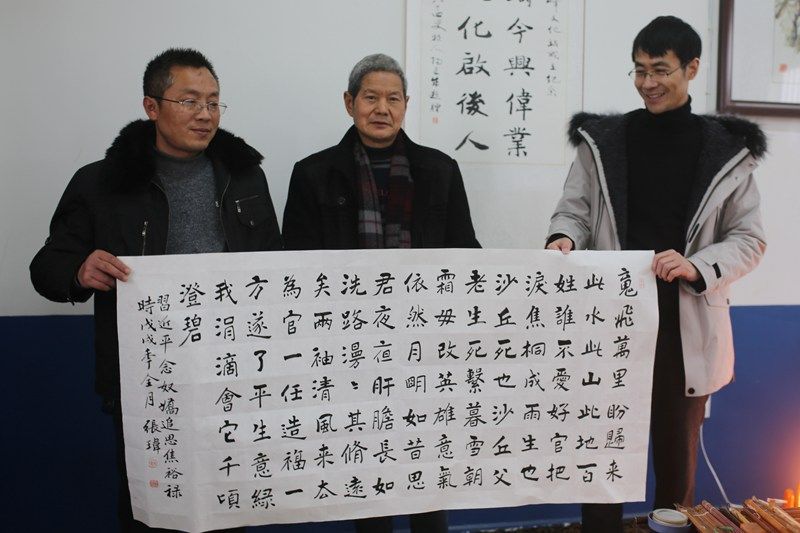 今興偉業
化啟後人
魂飛萬里盼歸来
此水此山此地百
姓誰不愛好官把
淚焦桐成雨生也
沙丘死也沙丘父
老生死繫暮雪朝
霜毋改英雄意氣
依然月明如昔思
君夜夜肝膽長如
洗路漫〻其脩遠
矣兩袖清風来去
為官一任造福一
方遂了平生意緑
我涓滴會它千頃
澄碧
習近平念奴嬌追思焦裕禄
時戊戌季冬月 張瑋